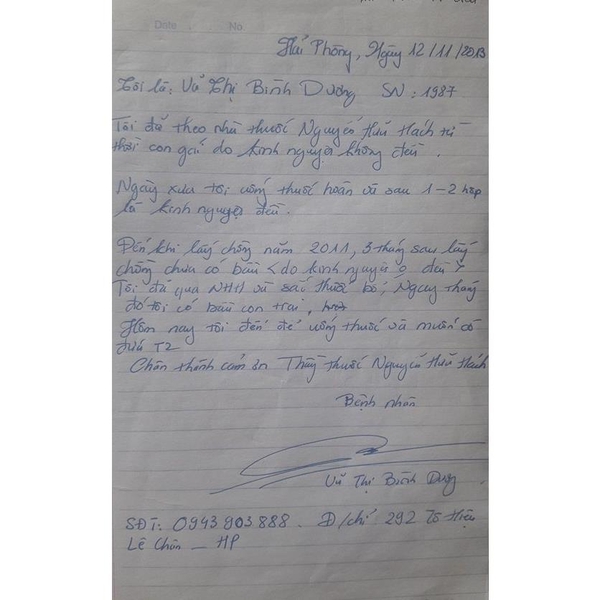 Date No
Hải Phòng, Ngày 12/11/2013
Tôi là: Vũ Thị Bình Dương SN: 1987
Tôi đã theo nhà thuốc Nguyễn Hữu Hách từ
thời con gái do kinh nguyệt không đều.
Ngày xưa tôi uống thuốc hoàn và sau 1-2 hộp
là kinh nguyệt đều.
Đến khi lấy chồng năm 2011, 3 tháng sau lấy
chồng chưa có bầu <do kinh nguyệt o đều>
Tôi đã qua NHH và sắc thuốc bổ, Ngay tháng
đó tôi có bầu con trai,
Hôm nay tôi đến để uống thuốc và muốn có
đứa T2
Chân thành cảm ơn Thầy thuốc Nguyễn Hữu Hách
Bệnh nhân
Vũ Thị Bình Dương
SĐT: 0943903888. Đ/chỉ 292 Tô Hiệu
Lê Chân _ HP